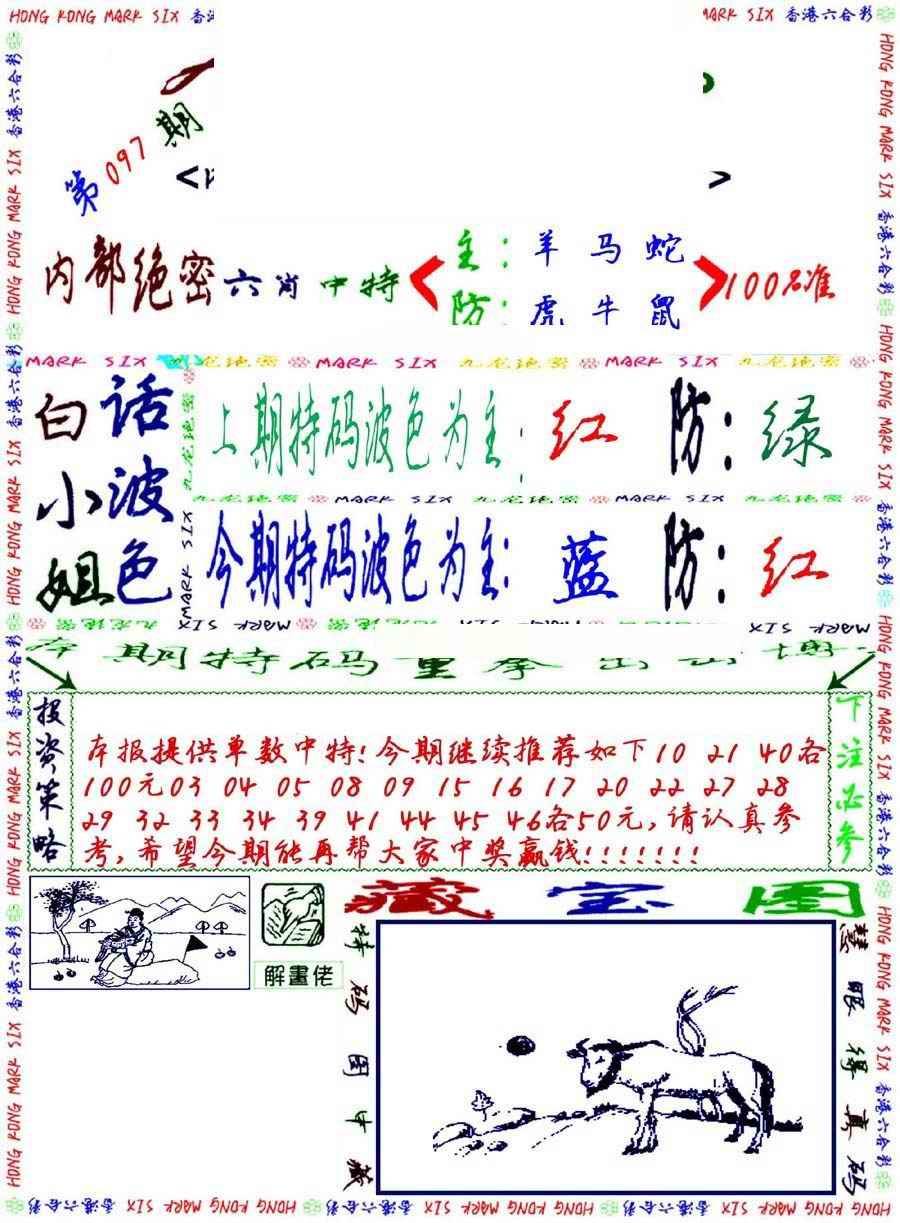 HONG KONG MARK SIX 香港六合彩
第097期
内部绝密六肖中特
主：羊马蛇
防：虎牛鼠
100%准
MARK SIX 九龙绝密 MARK SIX 九龙绝密 MARK SIX 九龙绝密
白话小姐
波色
上期特码波色为主：红 防：绿
九龙绝密 MARK SIX 九龙绝密 MARK SIX 九龙绝密
今期特码波色为主：蓝 防：红
本期特码重拳出击
投资策略
本报提供单数中特！今期继续推荐如下10 21 40各
100元03 04 05 08 09 15 16 17 20 22 27 28
29 32 33 34 39 41 44 45 46各50元，请认真参
考，希望今期能再帮大家中奖赢钱！！！！！！！
下注必参
解畫佬
藏宝图
特码图中藏
慧眼得真码